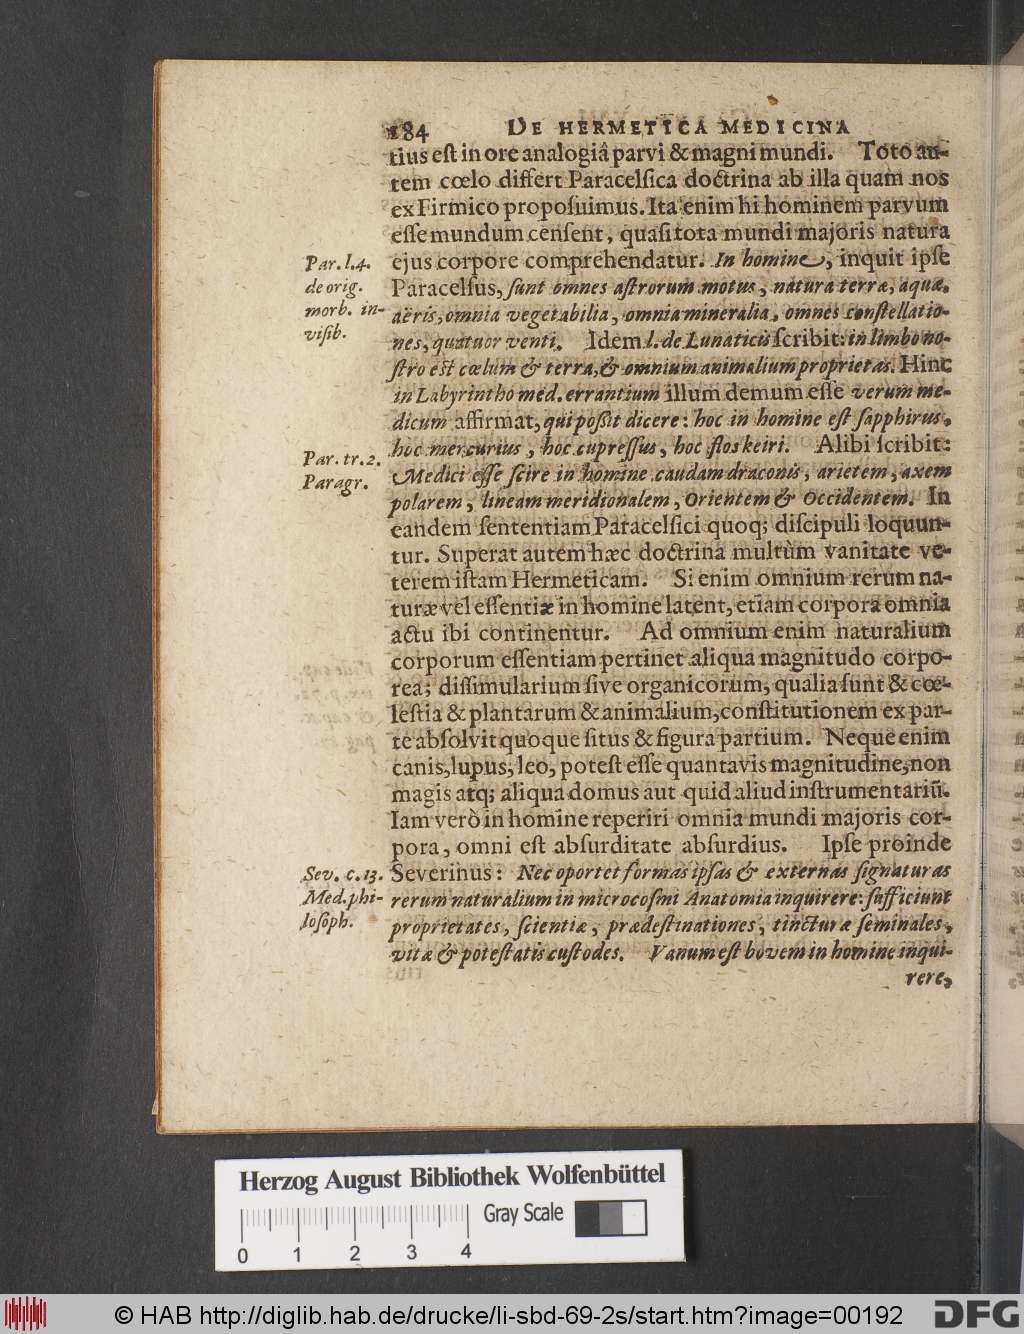 184 DE HERMETICA MEDICINA
tius est in ore analogiâ parvi & magni mundi. Toto au-
tem cœlo differt Paracelsica doctrina ab illa quam nos
ex Firmico proposuimus. Ita enim hi hominem parvum
esse mundum censent, quasi tota mundi majoris natura
Par. l. 4.
de orig.
morb. in-
visib.
ejus corpore comprehendatur. In homine, inquit ipse
Paracelsus, sunt omnes astrorum motus, natura terræ, aquæ,
aëris, omnia vegetabilia, omnia mineralia, omnes constellatio-
nes, quatuor venti. Idem l. de Lunaticis scribit: in limbo no-
stro est cœlum & terra, & omnium animalium proprietas. Hinc
in Labyrintho med. errantium illum demum esse verum me-
dicum affirmat, qui possit dicere: hoc in homine est sapphirus,
hoc mercurius, hoc cupressus, hoc flos keiri. Alibi scribit:
Par. tr. 2.
Paragr.
Medici esse scire in homine caudam draconis, arietem, axem
polarem, lineam meridionalem, Orientem & Occidentem. In
eandem sententiam Paracelsici quoq; discipuli loquun-
tur. Superat autem hæc doctrina multùm vanitate ve-
terem istam Hermeticam. Si enim omnium rerum na-
turæ vel essentiæ in homine latent, etiam corpora omnia
actu ibi continentur. Ad omnium enim naturalium
corporum essentiam pertinet aliqua magnitudo corpo-
rea; dissimularium sive organicorum, qualia sunt & cœ-
lestia & plantarum & animalium, constitutionem ex par-
te absolvit quoque situs & figura partium. Neque enim
canis, lupus, leo, potest esse quantavis magnitudine, non
magis atq; aliqua domus aut quid aliud instrumentariũ.
Iam verò in homine reperiri omnia mundi majoris cor-
pora, omni est absurditate absurdius. Ipse proinde
Sev. c. 13.
Med. phi-
losoph.
Severinus: Nec oportet formas ipsas & externas signaturas
rerum naturalium in microcosmi Anatomia inquirere: sufficiunt
proprietates, scientiæ, prædestinationes, tincturæ seminales,
vitæ & potestatis custodes. Vanum est bovem in homine inqui-
rere,
Herzog August Bibliothek Wolfenbüttel
Gray Scale
0 1 2 3 4
© HAB http://diglib.hab.de/drucke/li-sbd-69-2s/start.htm?image=00192
DFG